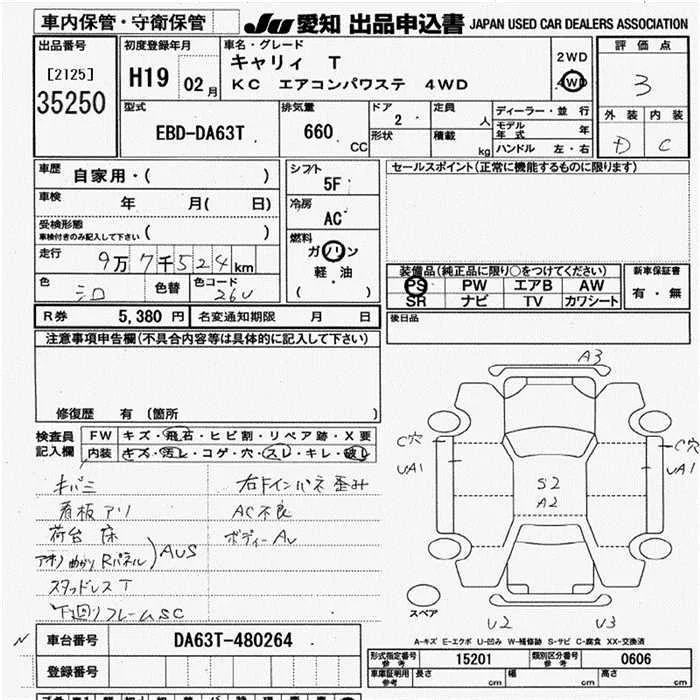 車内保管・守衛保管 JU 愛知 出品申込書 JAPAN USED CAR DEALERS ASSOCIATION
出品番号 初度登録年月 車名・グレード 評価点
[2125] H19 02月 キャリイ T 2WD 3
35250 KC エアコンパワステ 4WD 4WD
外装 内装
型式 排気量 ドア 定員 ディーラー・並行
EBD-DA63T 660 CC 2 人 モデル年式 年 D C
形状 積載 kg ハンドル 左・右
車歴 自家用・( ) シフト 5F セールスポイント(正常に機能するものに限ります)
車検 年 月( 日) 冷房 AC
受検形態 車検付きのみ記入して下さい ( )
走行 9万7千524km 燃料 ガソリン 軽・油 ( )
色 シロ 色替 色コード 26U
装備品(純正品に限り○をつけてください) 新車保証書
PS PW エアB AW 有・無
SR ナビ TV カワシート
R券 5,380円 名変通知期限 月 日 後日品
注意事項申告欄(不具合内容等は具体的に記入して下さい)
修復歴 有(箇所 )
検査員記入欄 FW キズ・飛石・ヒビ割・リペア跡・X要
内装 キズ・汚レ・コゲ・穴・スレ・キレ・破レ
キバミ 右ドインパネ歪み
看板アリ AC不良
荷台 床 ボディーAu
アオリ曲がり Rパネル AUS
スタッドレスT
下廻りフレームSC
A3
C穴 C穴
UA1 UA1
S2
A2
U2 U3
スペア
A-キズ E-エクボ U-凹み W-補修跡 S-サビ C-腐食 XX-交換済
N 車台番号 DA63T-480264
登録番号
形式指定番号 参考 15201 類別区分番号 参考 0606
車庫証明用 参考 長さ cm 幅 cm 高さ cm